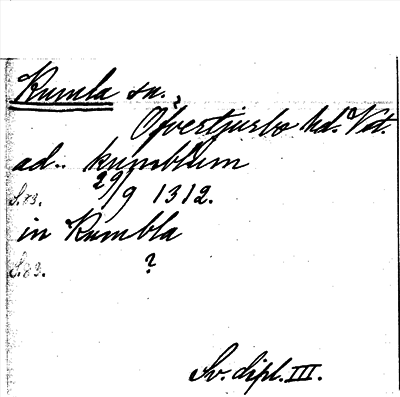 Kumla sn.
Övertjurbo hd. Vst.
ad.. kumblum
S. 83. 29/9 1312.
in Kumbla
S. 83. ?
Sv. dipl. III.